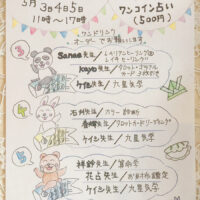 5月
3日4日5日
11時〜17時
ワンコイン占い
(500円)
ワンドリンク
オーダーでお願いします。
3
Sanae先生/レイリアンヒーリング
レイキヒーリング
kayo先生/タロット
カード3枚引き
ケイシ先生/九星気学
4
先生/カラー
先生/タロットカードリーディング
ケイシ先生/九星気学
5
先生/算命学
花占先生/お日にち鑑定
ケイシ先生/九星気学